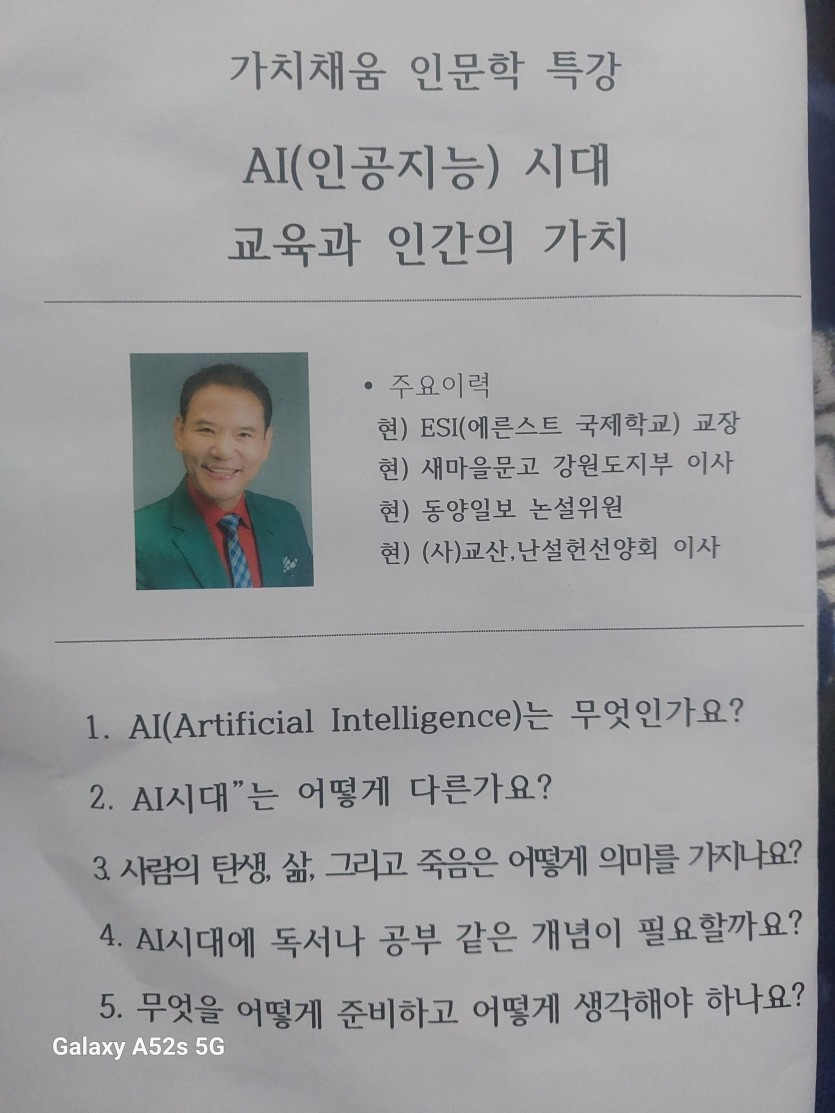 가치채움 인문학 특강
AI(인공지능) 시대
교육과 인간의 가치
• 주요이력
현) ESI(에른스트 국제학교) 교장
현) 새마을문고 강원도지부 이사
현) 동양일보 논설위원
현) (사)교산,난설헌선양회 이사
1. AI(Artificial Intelligence)는 무엇인가요?
2. AI시대”는 어떻게 다른가요?
3. 사람의 탄생, 삶, 그리고 죽음은 어떻게 의마를 가지나요?
4. AI시대에 독서나 공부 같은 개념이 필요할까요?
5. 무엇을 어떻게 준비하고 어떻게 생각해야 하나요?
Galaxy A52s 5G